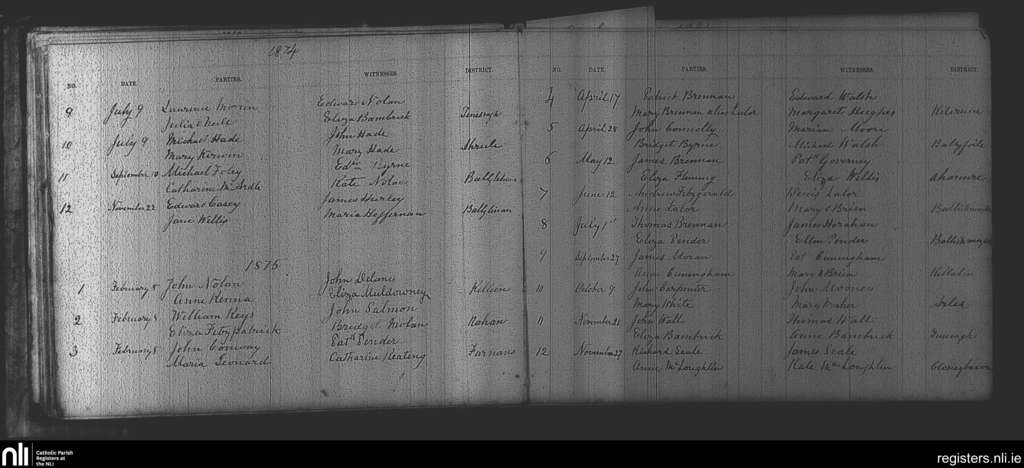 1874
NO. DATE. PARTIES. WITNESSES. DISTRICT.
9 July 9 Laurence Moran Edward Nolan
Julia Neill Eliza Bambrick
10 July 9 Michael Hade John Hade Shrule
Mary Kerwin Mary Hade
11 September 10 Michael Foley Edwd Byrne
Catharine McArdle Kate Nolan
12 November 22 Edward Casey James Hurley
Jane Willis Maria Heffernan
1875
1 February 8 John Nolan John Delany
Anne Kenna Eliza Muldowney Killeen
2 February 8 William Keys John Salmon
Eliza Fitzpatrick Bridget Nolan Rahan
3 February 8 John Conway Patk Pender
Maria Leonard Catharine Keating Farnans
NO. DATE. PARTIES. WITNESSES. DISTRICT.
4 April 17 Patrick Brennan Edward Walsh
Mary Brennan alias Lalor Margaret Hughes
5 April 28 John Connolly Marian Moore
Bridget Byrne Michael Walsh
6 May 12 James Brennan Patk Governey
Eliza Fleming Eliza Willis
7 June 12 Andrew Fitzgerald Denis Lalor
Anne Lalor Mary O'Brien
8 July 1st Thomas Brennan James Horahan
Eliza Pender Ellen Pender
9 September 27 James Moran Pat Cuningham
Anne Cuningham Mary O'Brien
10 October 9 John Carpenter John Mooney
Mary White Mary Maher
11 November 21 John Wall Thomas Wall
Eliza Bambrick Anne Bambrick
12 November 27 Richard Seale James Seale
Anne McLoughlin Kate McLoughlin
nli Catholic Parish
Registers at
the NLI
registers.nli.ie